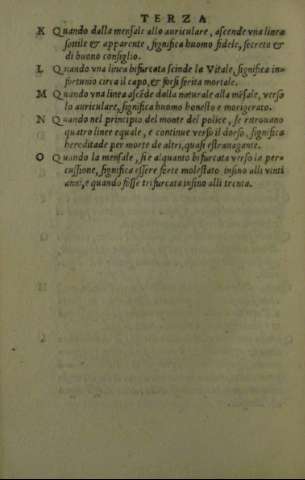 TERZA
K Quando dalla mensale allo auriculare, ascende vna linea
sottile & apparente, significa huomo fidele, secreto &
di buono consiglio.
L Quando vna linea bifurcata scinde la Vitale, significa in-
fortunio circa il capo, & forsi ferita mortale.
M Quando vna linea ascẽde dalla naturale alla mẽsale, verso
lo auriculare, significa huomo honesto e morigerato.
N Quando nel principio del monte del police, se retrouano
quatro linee equale, e continue verso il dorso, significa
hereditade per morte de altri, quasi estranagante.
O Quando la mensale, sie alquanto bifurcata verso la per-
cussione, significa essere forte molestato insino alli vinti
anni, e quando fosse trifurcata insino alli trenta.